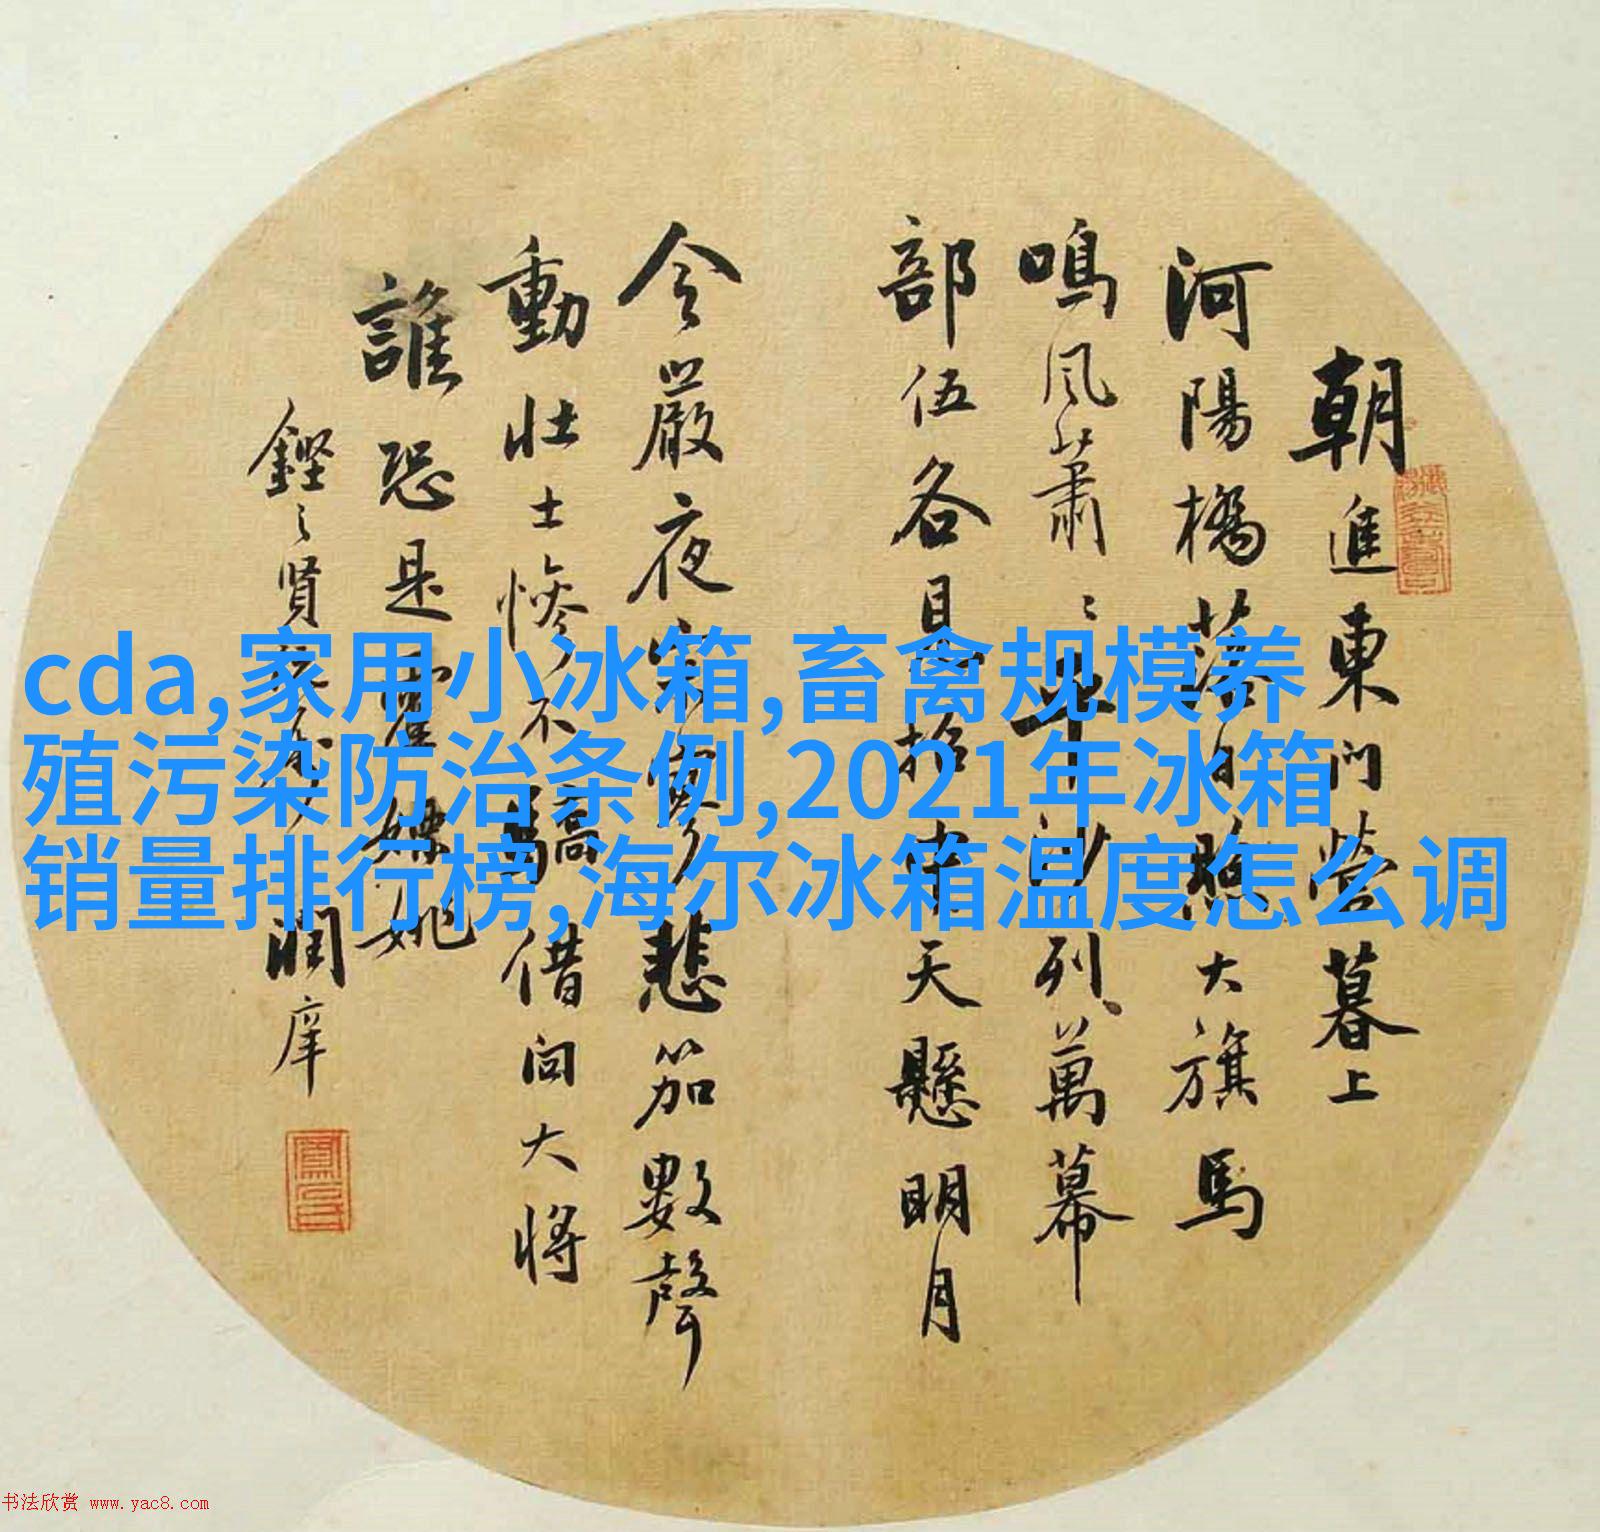 朝進東門營暮上
河陽橋落日照大旗馬
鳴風蕭〻平沙列萬幕
部伍各見招中天懸明月
令嚴夜寂寥悲笳數聲
動壯士慘不驕借問大將
誰恐是霍嫖姚
賢 潤庠
cda,家用小冰箱,畜禽规模养
殖污染防治条例,2021年冰箱
销量排行榜,海尔冰箱温度怎么调
书法欣赏 www.yac8.com